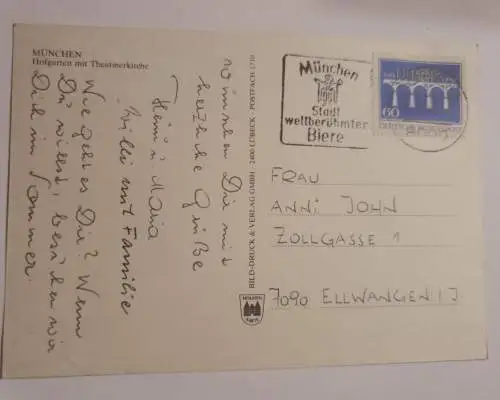 MÜNCHEN
Hofgarten mit Theatinerkirche
Wie geht es Dir? Wenn
Du willst, besuchen wir
Dich im Sommer.
wünschen Dir mit
herzliche Grüße
Maria
Willi mit Familie
BILD-DRUCK & VERLAG GMBH · 2400 LÜBECK · POSTFACH 1710
München
Stadt
weltberühmter
Biere
60
DEUTSCHE BUNDESPOST
FRAU
ANNI JOHN
ZOLLGASSE 1
7090 ELLWANGEN / J